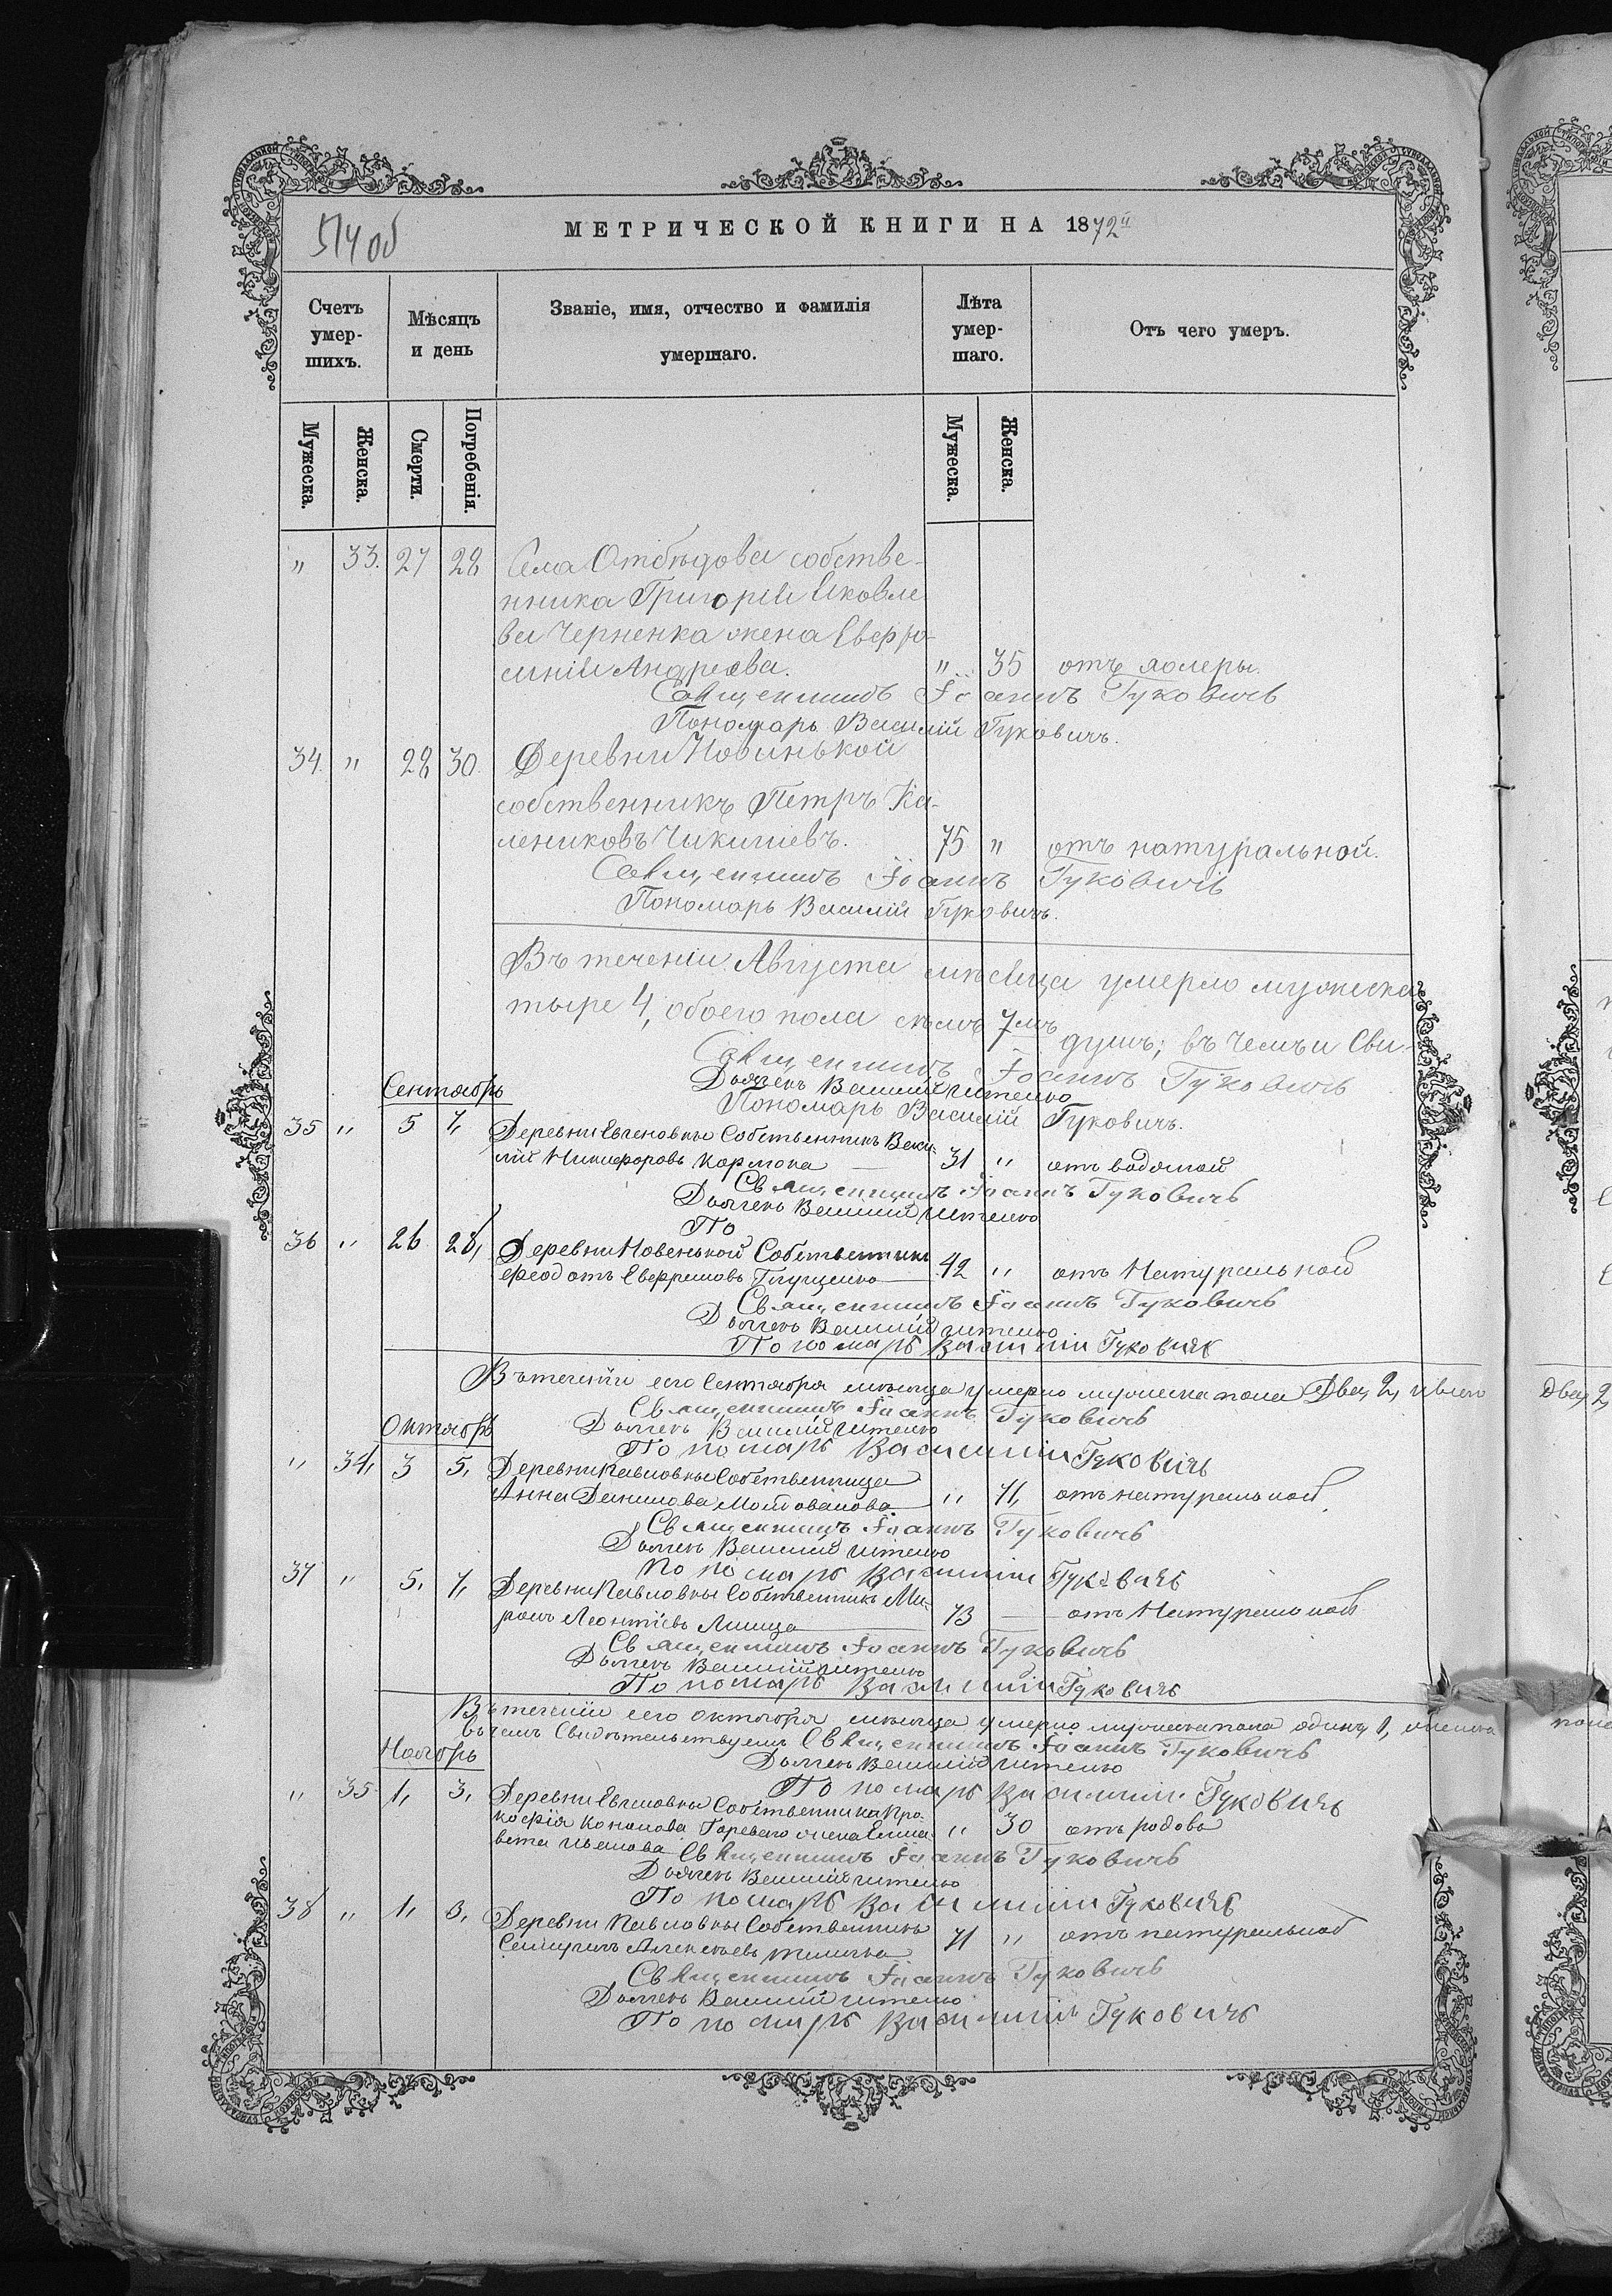 514 об
МЕТРИЧЕСКОЙ КНИГИ НА 1872й
Счетъ умер-шихъ.
Мѣсяцъ и день
Званіе, имя, отчество и фамилія умершаго.
Лѣта умер-шаго.
Отъ чего умеръ.
Мужеска.
Женска.
Смерти.
Погребенія.
Мужеска.
Женска.
" 33. 27 28 Села собстве-
нника Григорія Яковле
ва Черненка жена Евфро-
синія Андреева. " 35 отъ холеры.
Священникъ Іоаннъ Гуковичъ
Пономарь Василій Гуковичъ.
34 " 28 30 Деревни Новинькой
собственникъ Петръ Ка-
лениковъ 75 " отъ натуральной.
Священникъ Іоаннъ Гуковичъ
Пономарь Василій Гуковичъ.
Въ теченіи Августа мѣсяца умерло мужеска
тыре 4, обоего пола семь 7мъ душъ; въ чемъ и Сви-
Священникъ Іоаннъ Гуковичъ
Дьячекъ Василій
Сентябрь
Пономарь Василій Гуковичъ.
35 " 5 7, Деревни Собственникъ Васи-
лій Никифоровъ 31 " отъ водяной
Священникъ Іоаннъ Гуковичъ
Дьячекъ Василій
По
36 " 26 28, Деревни Новенькой Собственникъ
Феодотъ Глущенко 42 " отъ Натуральной
Священникъ Іоаннъ Гуковичъ
Дьячекъ Василій
Пономарь Василій Гуковичъ
Въ теченіи сего Сентября мѣсяца умерло мужеска пола Два, 2,
Священникъ Іоаннъ Гуковичъ
Дьячекъ Василій
Октябрь
Пономарь Василій Гуковичъ
" 34, 3 5, Деревни Павловки Собственница
Анна Данилова " 71, отъ натуральной
Священникъ Іоаннъ Гуковичъ
Дьячекъ Василій
Пономарь Василій Гуковичъ
37 " 5, 7, Деревни Павловки Собственникъ Ми-
ронъ Леонтіевъ 73 — отъ Натуральной
Священникъ Іоаннъ Гуковичъ
Дьячекъ Василій
Пономарь Василій Гуковичъ
Въ теченіи сего октября мѣсяца умерло мужеска пола одинъ 1,
въ чемъ Свидѣтельствуемъ Священникъ Іоаннъ Гуковичъ
Ноябрь
Дьячекъ Василій
Пономарь Василій Гуковичъ
" 35 1, 3, Деревни Собственника Про-
кофія Кононова жена Елиса- " 30 отъ родовъ
вета Иванова Священникъ Іоаннъ Гуковичъ
Дьячекъ Василій
Пономарь Василій Гуковичъ
38 " 1, 3, Деревни Павловки Собственникъ
Алексѣевъ 71 " отъ натуральной
Священникъ Іоаннъ Гуковичъ
Дьячекъ Василій
Пономарь Василій Гуковичъ
Два, 2,